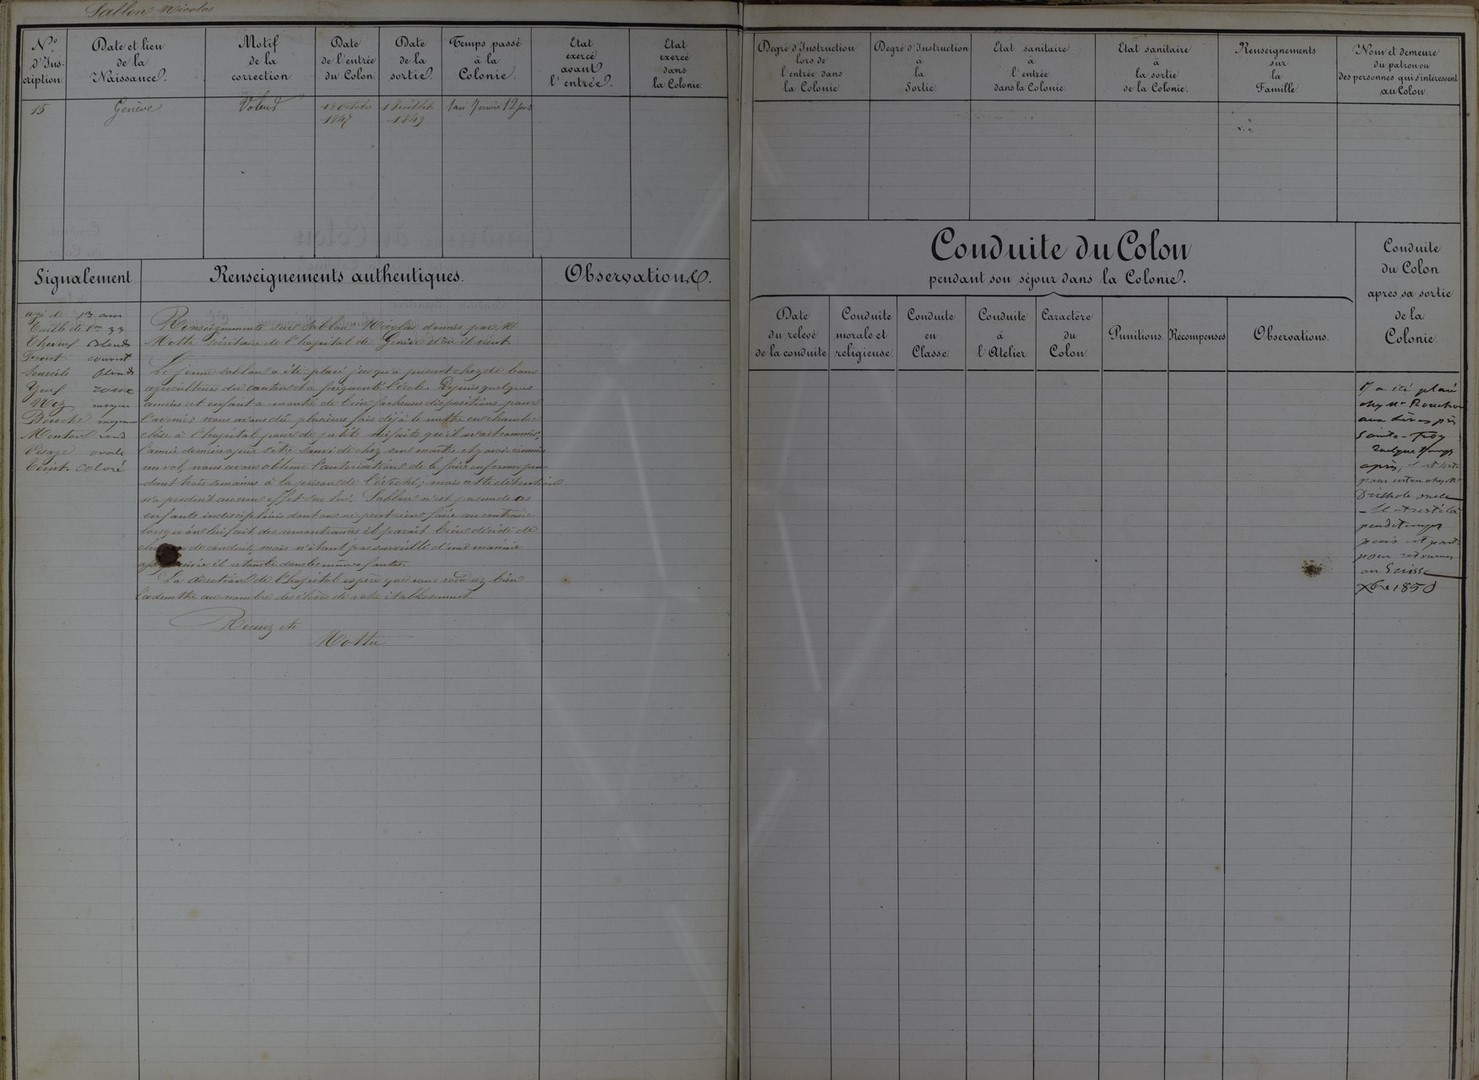 Sablon Nicolas
No
d'Ins-
cription
Date et lieu
de la
Naissance.
Motif
de la
correction
Date
de l'entrée
du Colon
Date
de la
sortie.
Temps passé
à la
Colonie.
Etat
exercé
avant
l'entrée.
Etat
exercé
dans
la Colonie.
15
Genève
1847
1849
1 an 7 mois 12 jours
Signalement
Renseignements authentiques.
Observations.
agé de 13 ans
Taille de 1m 33
Cheveux blonds
Front couvert
Sourcils blonds
Yeux roux
Nez moyen
Bouche moyenne
Menton rond
Visage ovale
Teint coloré
Renseignements sur Sablon Nicolas donnés par M.
Motte secrétaire de l'hopital de Genève d'où il vient
Le jeune Sablon a été placé jusqu'à présent chez de bons
agriculteurs du canton et a fréquenté l'école. Depuis quelques
années cet enfant a montré de bien facheuses dispositions pour
l'avenir, nous avons dû plusieurs fois déjà le mettre en chambre
close à l'hopital pour de petits méfaits qu'il avait commis,
l'année dernière après s'être sauvé de chez son maitre et y avoir commis
un vol, nous avons obtenu l'autorisation de le faire enfermer pen
dant trois semaines à la prison de l'évêché; mais cette détention
n'a produit aucun effet sur lui. Sablon n'est pas un de ces
enfants indisciplinés dont on ne peut rien faire au contraire
lorsqu'on lui fait des remontrances il parait bien décidé de
de conduite mais n'étant pas surveillé d'une manière
il retombe dans les mêmes fautes.
La direction de l'hopital espère que vous voudrez bien
l'admettre au nombre des élèves de votre établissement.
Recevez etc
Motte
Degré d'Instruction
lors de
l'entrée dans
la Colonie
Degré d'Instruction
à
la
Sortie.
Etat sanitaire
à
l'entrée
dans la Colonie.
Etat sanitaire
à
la sortie
de la Colonie.
Renseignements
sur
la
Famille
Nom et demeure
du patron ou
des personnes qui s'intéressent
au Colon.
Conduite du Colon
pendant son séjour dans la Colonie.
Date
du relevé
de la conduite
Conduite
morale et
religieuse.
Conduite
en
Classe.
Conduite
à
l'Atelier.
Caractère
du
Colon.
Punitions.
Récompenses.
Observations.
Conduite
du Colon
après sa sortie
de la
Colonie.
Il a été placé
chez Mr
près
Sainte-Foy
quelque temps
après, il est
chez Mr
- Il est resté là
peu de temps
puis est parti
pour retourner
en Suisse
Xbre 1850